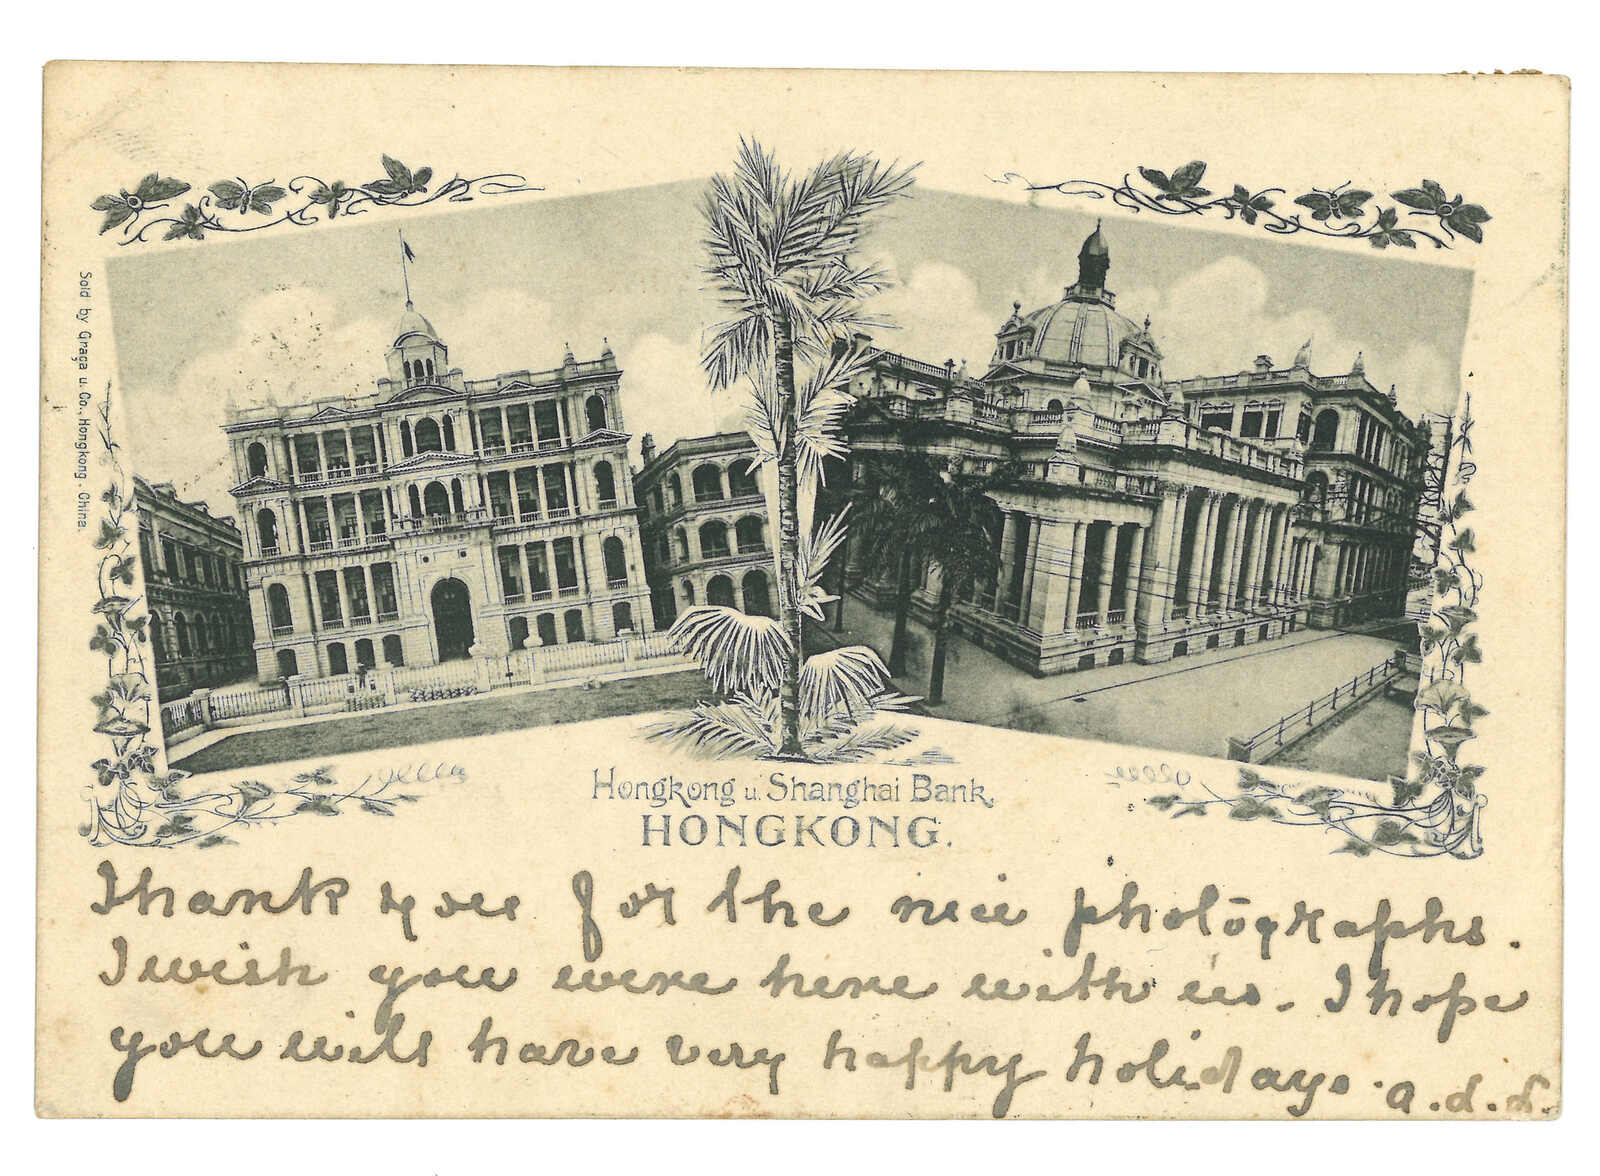 Sold by Graça u. Co., Hongkong. China.
Hongkong u. Shanghai Bank,
HONGKONG.
Thank you for the nice photographs.
I wish you were here with us. I hope
you will have very happy holidays. a.d.d.